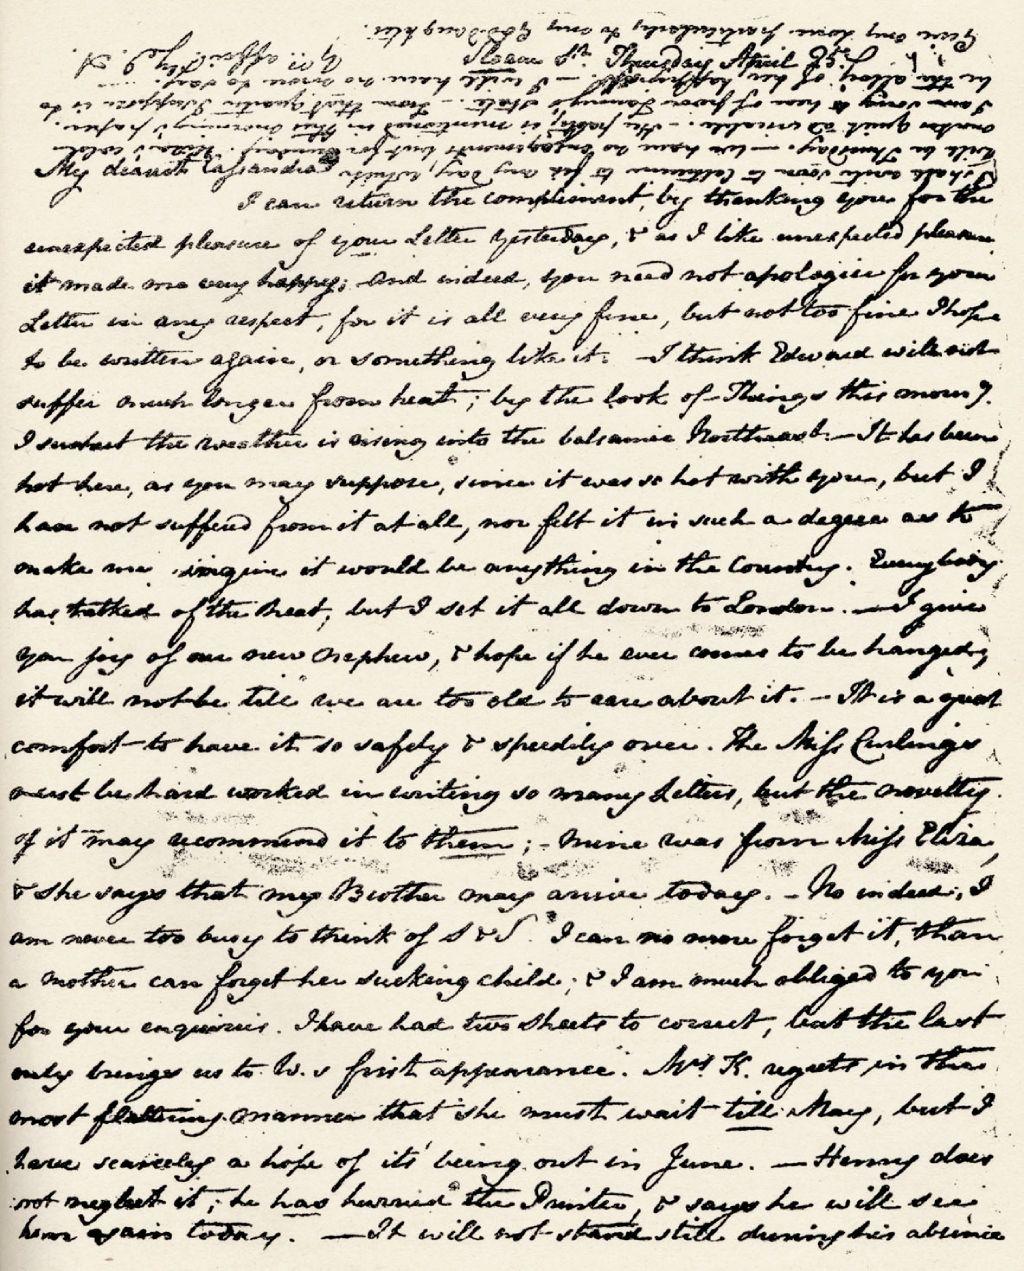 Sloane St Thursday April 25
My dearest Cassandra
I can return the compliment by thanking you for the
unexpected pleasure of your Letter yesterday, & as I like unexpected pleasure
it made me very happy; And indeed, you need not apologise for your
Letter in any respect, for it is all very fine, but not too fine I hope
to be written again, or something like it. —I think Edward will not
suffer much longer from heat; by the look of Things this morng.
I suspect the weather is rising into the balsamic Northeast.—It has been
hot here, as you may suppose, since it was so hot with you, but I
have not suffered from it at all, nor felt it in such a degree as to
make me imagine it would be anything in the Country. Everybody
has talked of the heat, but I set it all down to London.—I give
you joy of our new nephew, & hope if he ever comes to be hanged,
it will not be till we are too old to care about it.—It is a great
comfort to have it so safely & speedily over. The Miss Curlings
must be hard worked in writing so many Letters, but the novelty
of it may recommend it to them;—mine was from Miss Eliza,
& she says that my Brother may arrive today.—No indeed, I
am never too busy to think of S & S. I can no more forget it, than
a mother can forget her sucking child; & I am much obliged to you
for your enquiries. I have had two sheets to correct, but the last
only brings us to W.s first appearance. Mrs K. regrets in the
most flattering manner that she must wait till May, but I
have scarcely a hope of its being out in June.—Henry does
not neglect it; he has hurried the Printer, & says he will see
him again today.—It will not stand still during his absence
I shall write soon to Catherine to fix my day, which
will be Thursday.—We have no engagements but for Sunday. Eliza's cold
makes quiet advisable.—Her party is mentioned in this morning's paper.
I am sorry to hear of poor Fanny's state.—From that quarter I suppose is to
be the alloy of her happiness.—I will have no more to say.—
Yrs affectly J. A
Give my love particularly to my God-daughter.